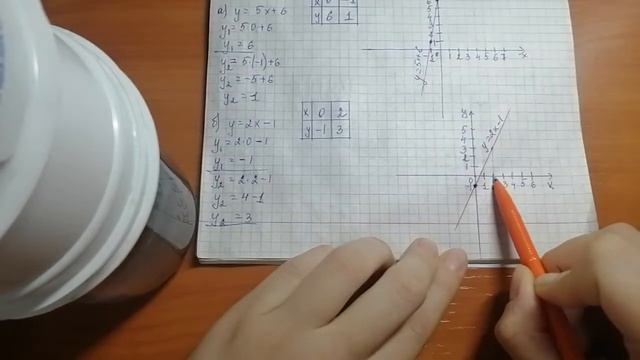 а) y = 5x+6
y₁ = 5·0+6
y₁ = 6
y₂ = 5·(-1)+6
y₂ = -5+6
y₂ = 1
x 0 -1
y 6 1
б) y = 2x-1
y₁ = 2·0-1
y₁ = -1
y₂ = 2·2-1
y₂ = 4-1
y₂ = 3
x 0 2
y -1 3
1 2 3 4 5 6 7 x
y
5
4
3
2
1
y=2x-1
0 1 3 4 5 6 x